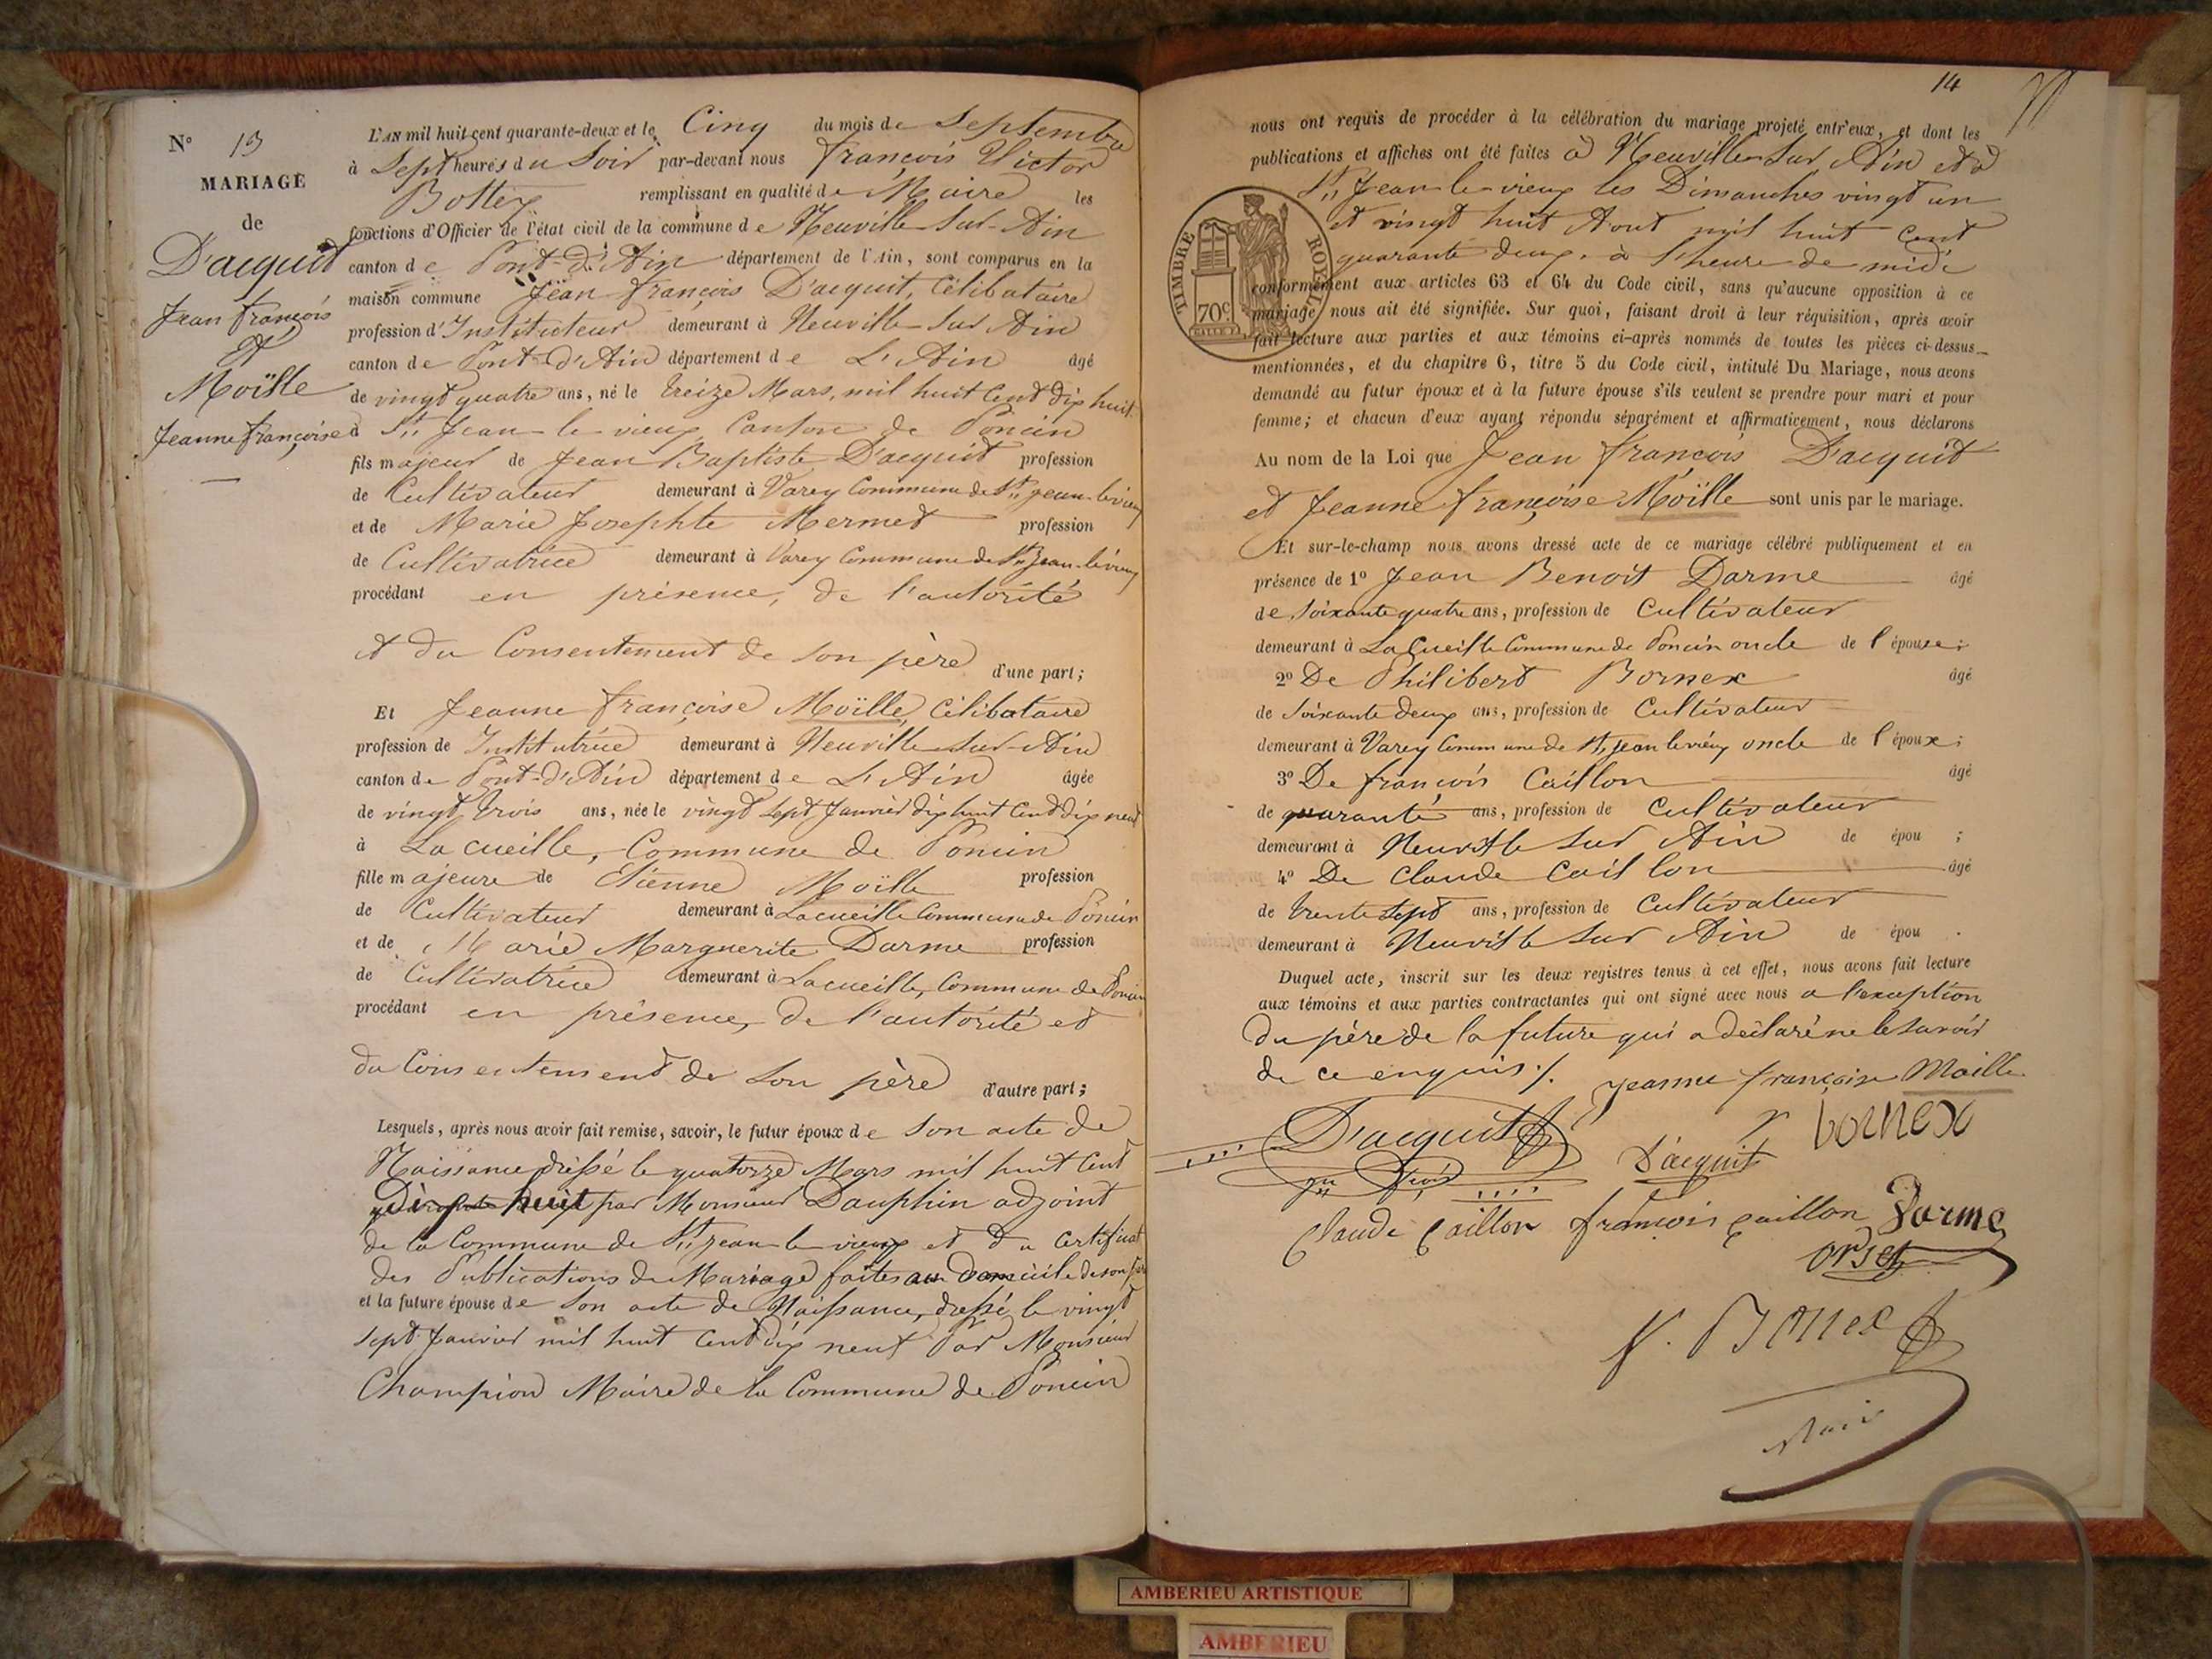 N° 13
MARIAGE
de
D'acquit
Jean François
Et
Moïlle
Jeanne françoise
L'AN mil huit cent quarante-deux et le Cinq du mois de Septembre
à Sept heures du Soir par-devant nous françois Victor
Bottex remplissant en qualité de Maire les
fonctions d'Officier de l'état civil de la commune de Neuville-Sur-Ain
canton de Pont-d'Ain département de l'Ain, sont comparus en la
maison commune Jean françois D'acquit, Célibataire
profession d'Instituteur demeurant à Neuville-Sur Ain
canton de Pont-d'Ain département de L'Ain âgé
de vingt quatre ans, né le treize Mars, mil huit Cent dix huit
à St Jean-le-vieux Canton de Poncin
fils majeur de Jean Baptiste D'acquit profession
de Cultivateur demeurant à Varey Commune de St jean-levieux
et de Marie Josephte Mermet profession
de Cultivatrice demeurant à Varey Commune de St Jean-levieux
procédant en présence, de l'autorité
et du Consentement de son père d'une part;
Et Jeanne françoise Moïlle, Célibataire
profession de Institutrice demeurant à Neuville-Sur-Ain
canton de Pont-d'Ain département de L'Ain âgée
de vingt trois ans, née le vingt sept Janvier dix huit Cent dix neuf
à La cueille, Commune de Poncin
fille majeure de Etienne Moïlle profession
de Cultivateur demeurant à Lacueille Commune de Poncin
et de Marie Marguerite Darme profession
de Cultivatrice demeurant à Lacueille, Commune de Poncin
procédant en présence, de l'autorité et
du Consentement de Son père d'autre part;
Lesquels, après nous avoir fait remise, savoir, le futur époux de Son acte de
Naissance dressé le quatorze Mars mil huit Cent
Dix huit par Monsieur Dauphin adjoint
de la Commune de St jean-le vieux et du Certificat
des Publications de Mariage faites au Domicile de son père
et la future épouse de Son acte de Naissance, dressé le vingt
sept Janvier mil huit Cent dix neuf Par Monsieur
Champion Maire de la Commune de Poncin
14
nous ont requis de procéder à la célébration du mariage projeté entr'eux, et dont les
publications et affiches ont été faites à Neuville Sur Ain et à
St Jean-le-vieux les Dimanches vingt un
et vingt huit Aout mil huit Cent
quarante deux. à l'heure de midi
TIMBRE ROYAL
70c
conformément aux articles 63 et 64 du Code civil, sans qu'aucune opposition à ce
mariage nous ait été signifiée. Sur quoi, faisant droit à leur réquisition, après avoir
fait lecture aux parties et aux témoins ci-après nommés de toutes les pièces ci-dessus
mentionnées, et du chapitre 6, titre 5 du Code civil, intitulé Du Mariage, nous avons
demandé au futur époux et à la future épouse s'ils veulent se prendre pour mari et pour
femme; et chacun d'eux ayant répondu séparément et affirmativement, nous déclarons
Au nom de la Loi que Jean françois D'acquit
et Jeanne françoise Moïlle sont unis par le mariage.
Et sur-le-champ nous avons dressé acte de ce mariage célébré publiquement et en
présence de 1° Jean Benoit Darme âgé
de Soixante quatre ans, profession de Cultivateur
demeurant à La Cueille Commune de Poncin oncle de l'épouse;
2° De Philibert Bornex âgé
de Soixante deux ans, profession de Cultivateur
demeurant à Varey Commune de St jean levieux oncle de l'époux;
3° De françois Caillon âgé
de quarante ans, profession de Cultivateur
demeurant à Neuville Sur Ain de épou ;
4° De Claude Caillon âgé
de trente sept ans, profession de Cultivateur
demeurant à Neuville Sur Ain de épou .
Duquel acte, inscrit sur les deux registres tenus à cet effet, nous avons fait lecture
aux témoins et aux parties contractantes qui ont signé avec nous a l'exception
du père de la future qui a déclaré ne le savoir
de ce enquis ./. jeanne françoise Moille
D'acquit bornex
D'acquit
Claude Caillon françois caillon Darme
orset
V. Bottex
Maire
AMBERIEU ARTISTIQUE
AMBERIEU